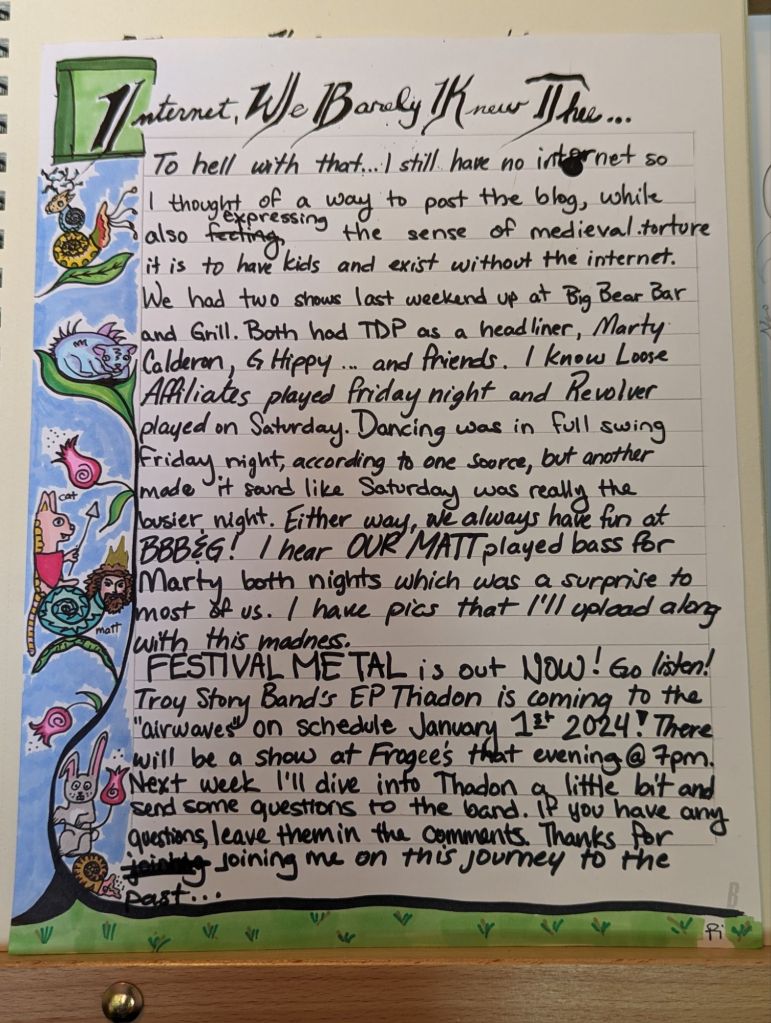 Internet, We Barely Knew Thee...
To hell with that... I still have no internet so
I thought of a way to post the blog, while
also feeling, expressing the sense of medieval torture
it is to have kids and exist without the internet.
We had two shows last weekend up at Big Bear Bar
and Grill. Both had TDP as a headliner, Marty
Calderon, G Hippy ... and friends. I know Loose
Affiliates played Friday night and Revolver
played on Saturday. Dancing was in full swing
Friday night, according to one source, but another
made it sound like Saturday was really the
busier night. Either way, we always have fun at
BBB&G! I hear OUR MATT played bass for
Marty both nights which was a surprise to
most of us. I have pics that I'll upload along
with this madness.
FESTIVAL METAL is out NOW! Go listen!
Troy Story Band's EP Thadon is coming to the
"airwaves" on schedule January 1st 2024! There
will be a show at Frogee's that evening @ 7pm.
Next week I'll dive into Thadon a little bit and
send some questions to the band. If you have any
questions, leave them in the comments. Thanks for
joining joining me on this journey to the
past...
cat
matt
B
Ri